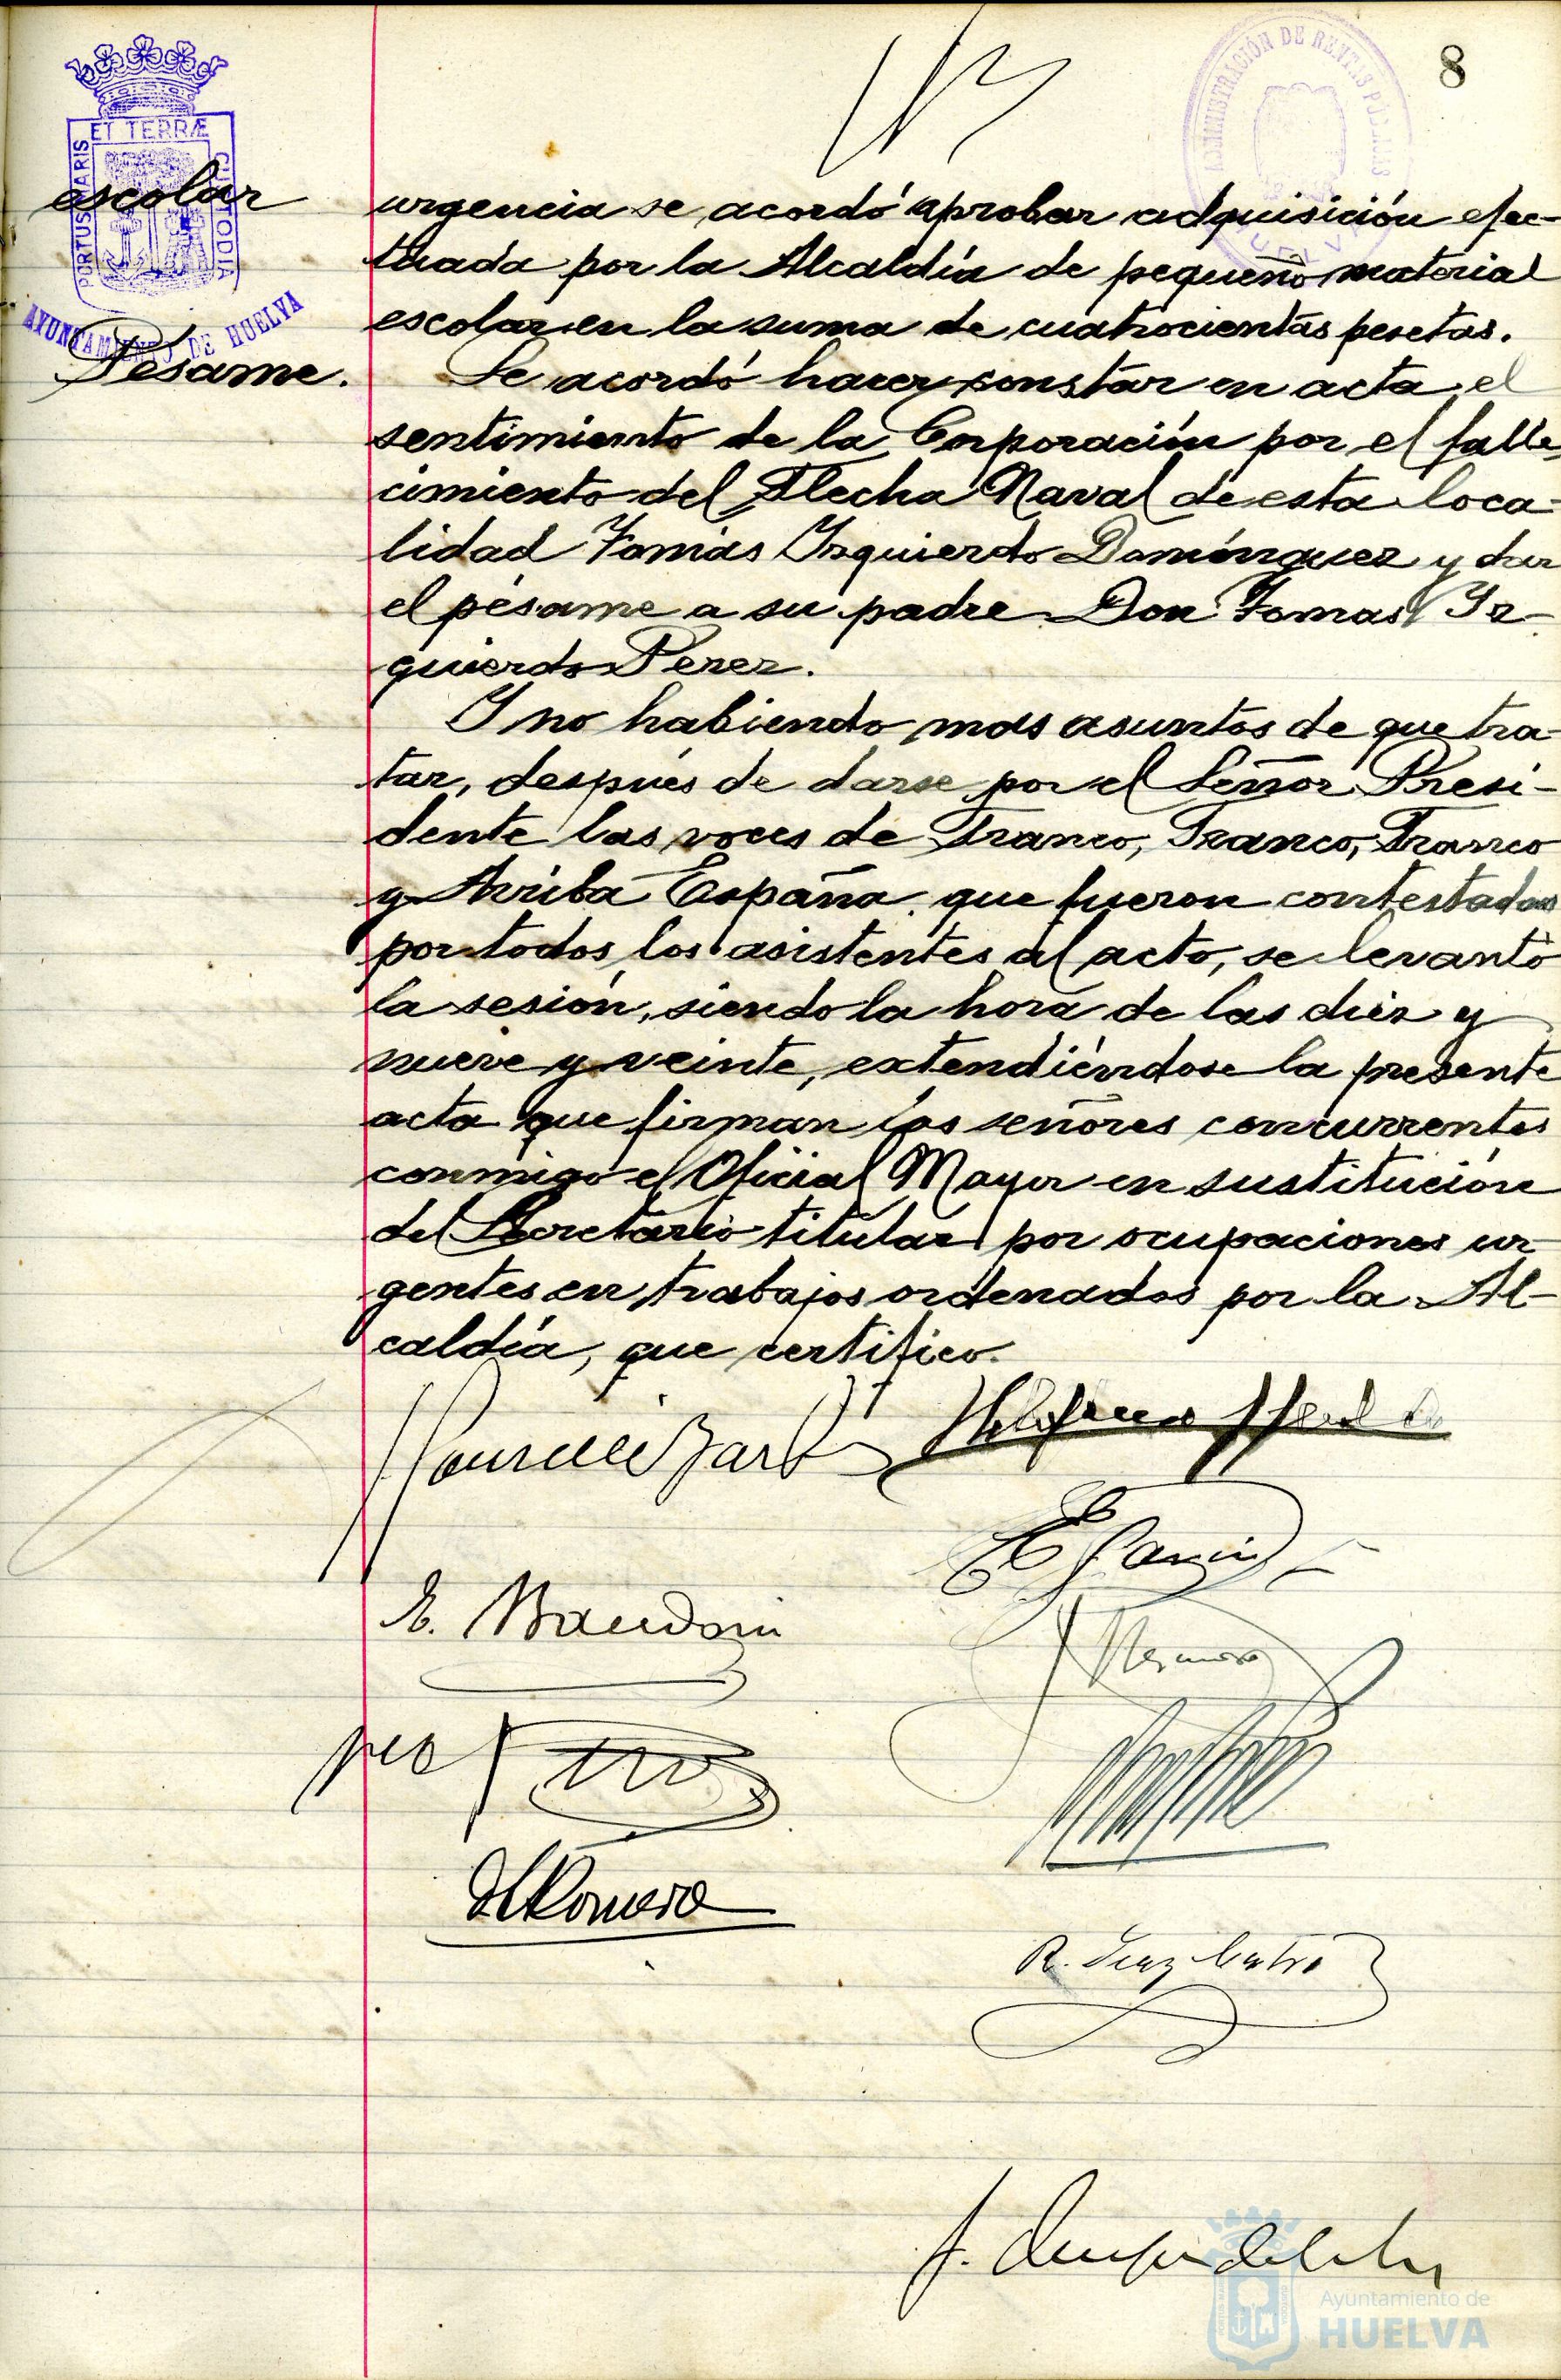 8
ADMINISTRACIÓN DE RENTAS PÚBLICAS
HUELVA
PORTUS MARIS ET TERRÆ CUSTODIA
AYUNTAMIENTO DE HUELVA
escolar
urgencia se acordó aprobar adquisición efec-
tuada por la Alcaldía de pequeño material
escolar en la suma de cuatrocientas pesetas.
Pésame.
Se acordó hacer constar en acta el
sentimiento de la Corporación por el falle-
cimiento del Flecha Naval de esta loca-
lidad Tomás Izquierdo Domínguez y dar
el pésame a su padre Don Tomas Iz-
quierdo Perez.
Y no habiendo mas asuntos de que tra-
tar, después de darse por el Señor Presi-
dente las voces de Franco, Franco, Franco
y Arriba España, que fueron contestadas
por todos los asistentes al acto, se levantó
la sesión, siendo la hora de las diez y
nueve y veinte, extendiéndose la presente
acta que firman los señores concurrentes
conmigo el Oficial Mayor en sustitución
del Secretario titular por ocupaciones ur-
gentes en trabajos ordenados por la Al-
caldía, que certifico.
E. Baudoin
Romero
R. Diaz Castro
Ayuntamiento de
HUELVA